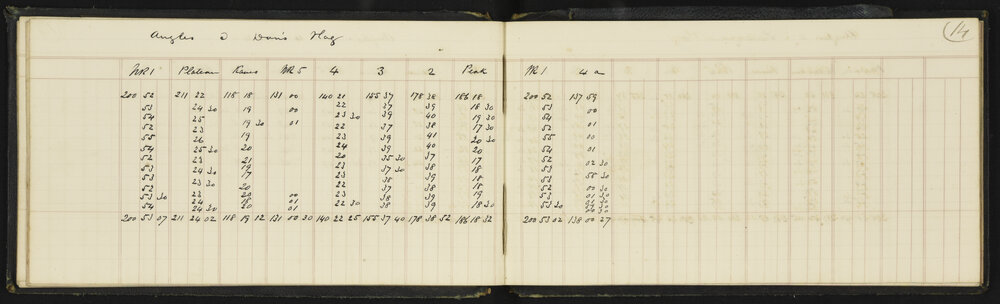 14
Angles @ Don's Flag
NR 1 Plateau NR 5 4 3 2 Peak NR 1 4 a
200 52 211 22 118 18 131 00 140 21 155 37 178 38 186 18 200 52 137 59
53 24 30 19 00 22 37 39 18 30 53 00
54 25 19 30 01 23 30 39 40 19 30 54 01
52 23 19 22 37 38 17 30 52 00
55 26 20 23 39 41 20 30 55 01
54 25 30 21 24 39 40 20 54 02 30
52 23 19 20 35 30 37 17 52
53 24 30 17 23 37 30 38 18 53
53 23 30 20 23 38 39 18 53 00 30
52 23 20 00 22 37 38 18 52 01 30
53 30 24 18 01 23 38 39 19 53 30
54 24 30 20 01 22 30 38 39 18 30 54
200 53 07 211 24 02 118 19 12 131 00 30 140 22 25 155 37 40 178 38 52 186 18 32 200 53 02 138 00 27